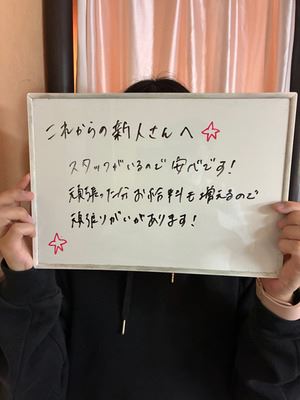 これからの新人さんへ
スタッフがいるので安心です!
頑張った分お給料も増えるので
頑張りがいがあります!